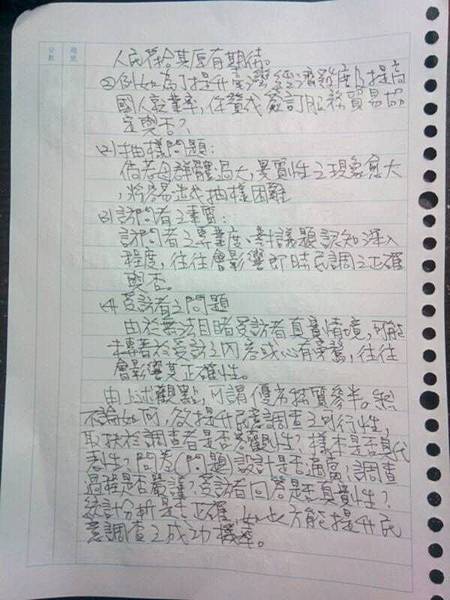 人民符合其原有期待。
②例如:為了提升臺灣經濟難度及提高
國人就業率,你贊成簽訂服務貿易協
定與否?
(2)抽樣問題:
倘若母群體過大,異質性之現象愈大
,將容易造成抽樣困難
(3)訪問者之素質:
訪問者之專業度、對議題認知深入
程度,往往會影響即時民調之正確
與否。
(4)受訪者之問題
由於無法目睹受訪者真實情境,可能
專著於受訪之內容或心有旁騖,往往
會影響其正確性。
由上述觀點,可謂優劣摻質參半。總
不論如何,欲提升民意調查之可行性,
取決於調查者是否客觀性?樣本是否具代
表性?問卷(問題)設計是否適當?調查
過程是否嚴謹?受訪者回答是否真實性?
統計分析是否正確,如此方能提升民
意調查之成功機率。